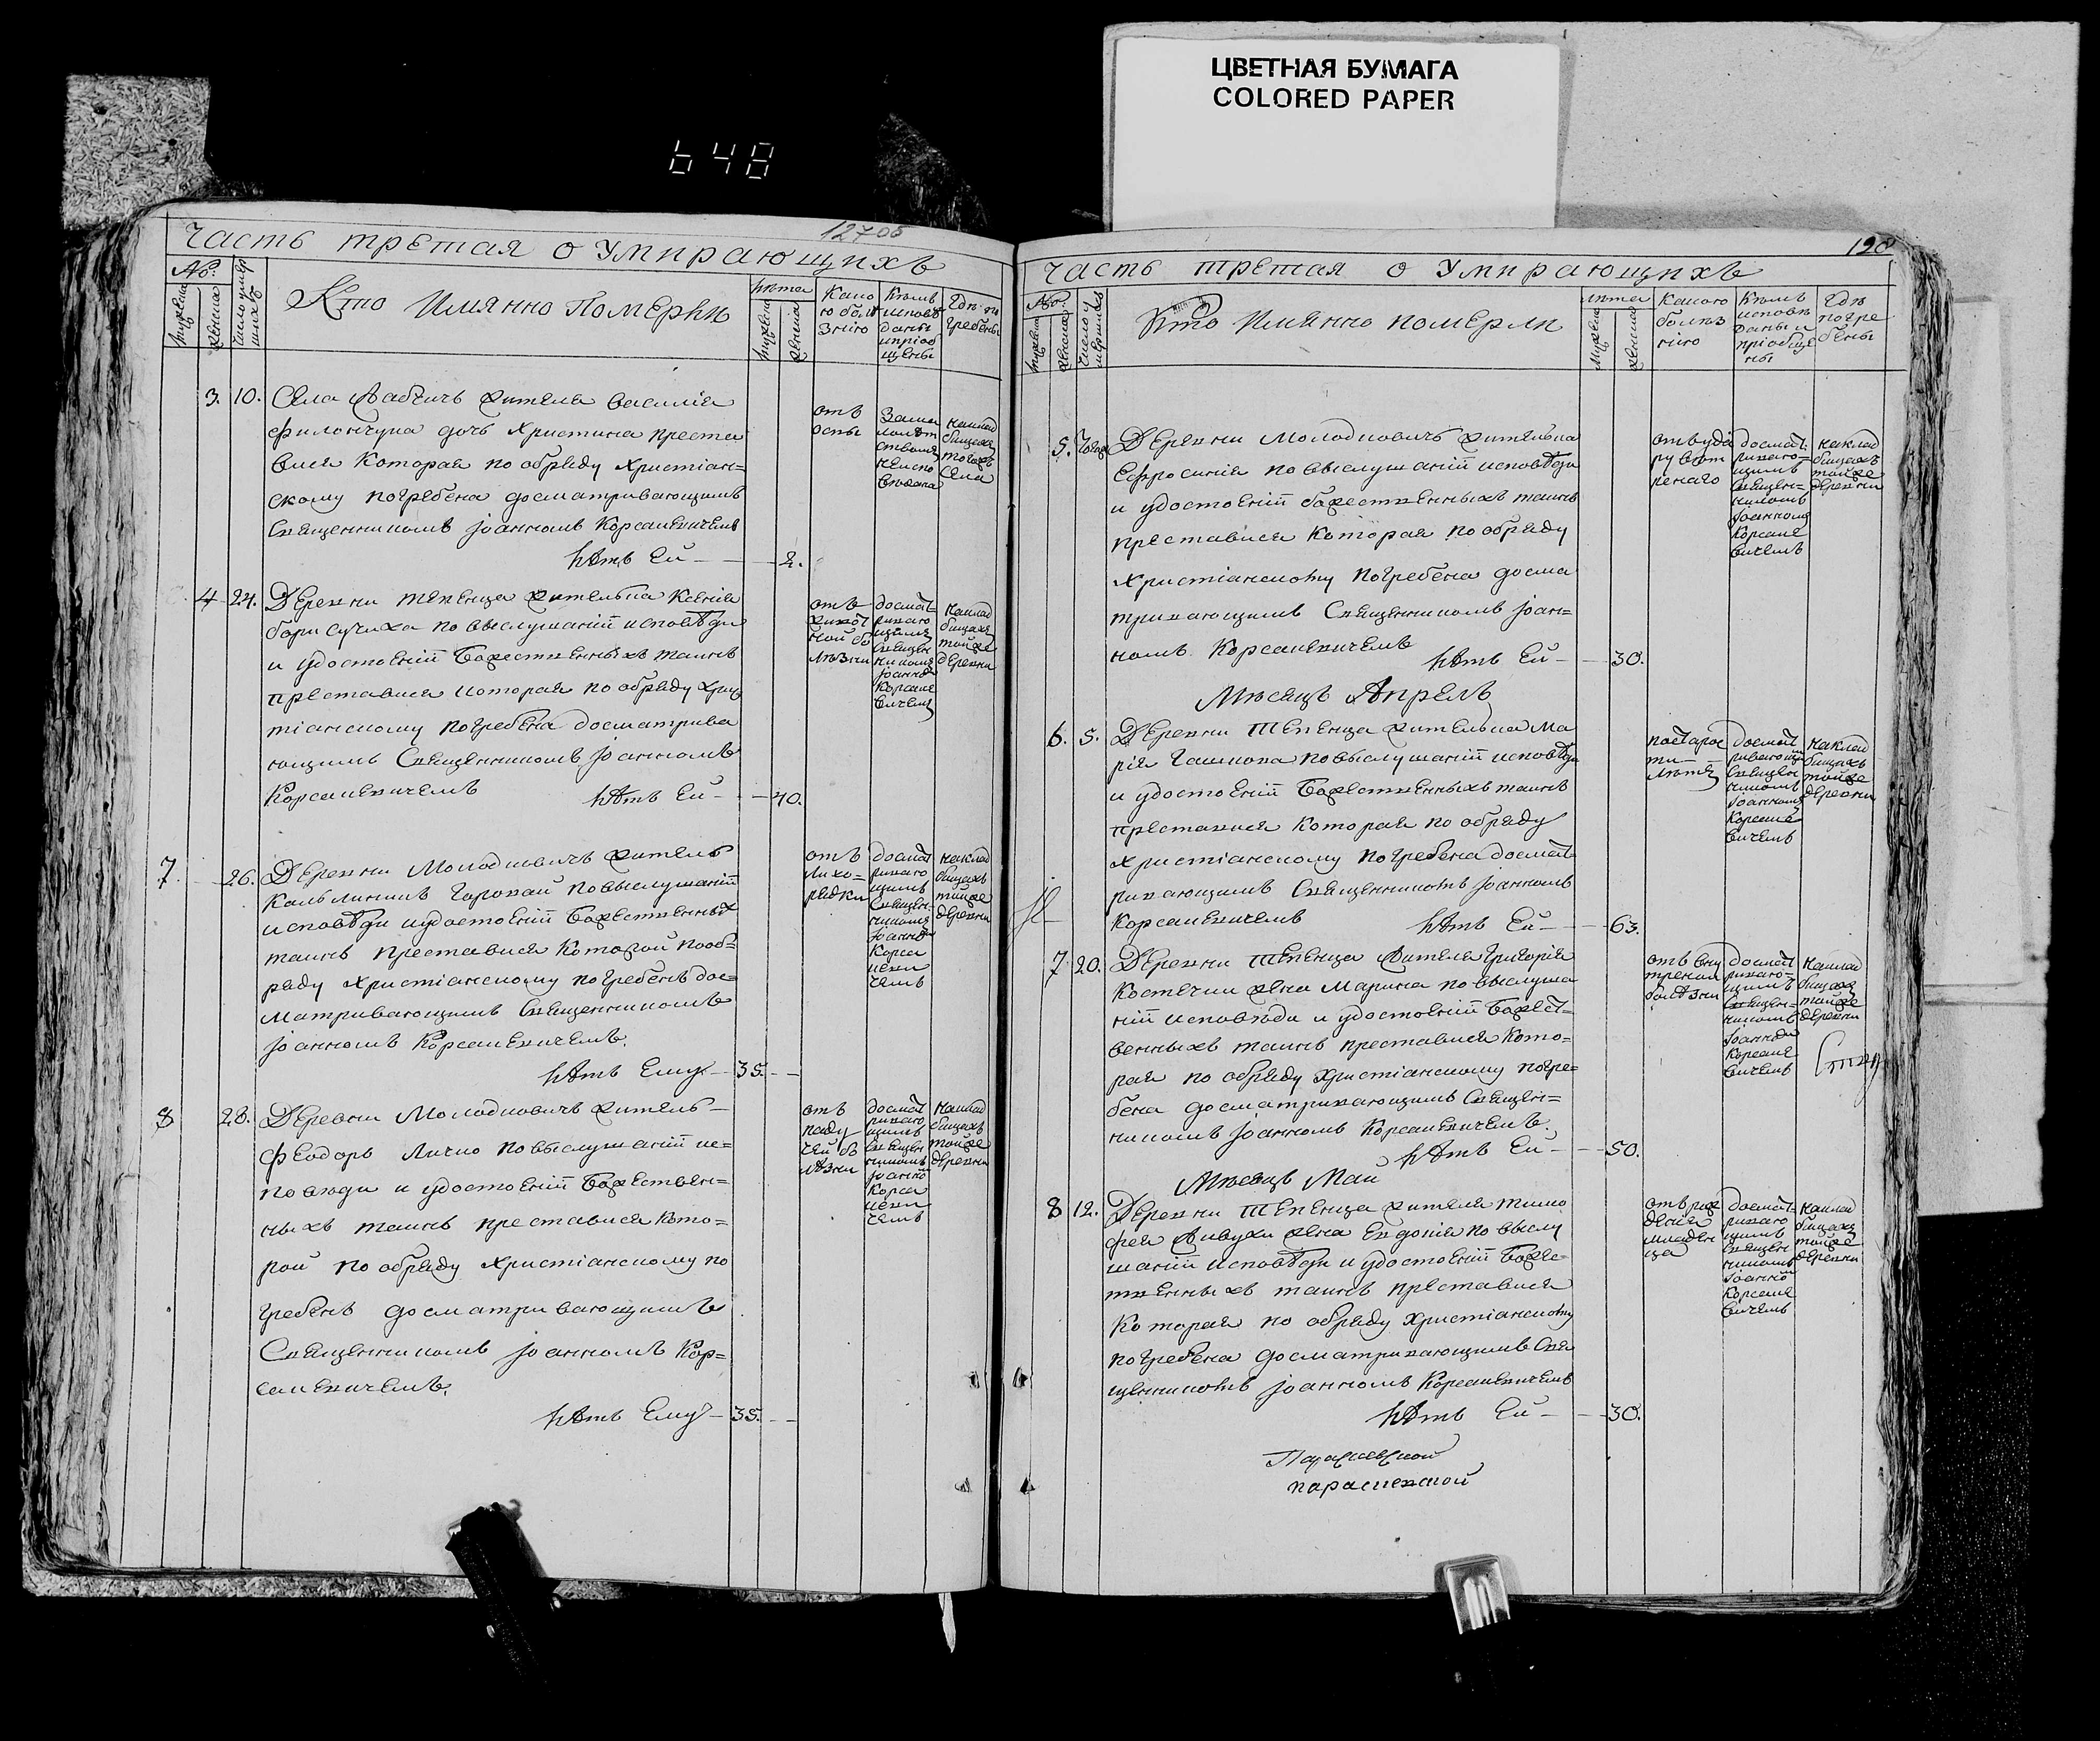 ЦВЕТНАЯ БУМАГА
COLORED PAPER
648
127 об
Часть третая о умирающихъ
№:
мужеска
женска
Число умер
шихъ
Кто имянно померли
лѣта
мужеска
женска
Како
ю болѣ
знію
Кѣмъ
исповѣ
даны
и пріоб
щены
Гдѣ по
гребены
3. 10. Села Бабчичъ жителя Василія
дочь Христина преста
вися которая по обряду христіан=
скому погребена досматривающимъ
Священникомъ Іоанномъ Корсакевичемъ
Лѣтъ Ей — 2.
отъ
оспы
За ма
лолѣт
ствомъ
не испо
вѣдана
на клад
бищахъ
тогожъ
Села
4 24. Деревни Тепенца жителька Ксенія
по выслушаніи исповѣди
и удостоеніи Божественныхъ таинъ
преставися которая по обряду Хрис
тіанскому погребена досматрива
ющимъ Священникомъ Іоанномъ
Корсакевичемъ Лѣтъ Ей — 40.
отъ
живот
ной бо
лѣзни
досмат
риваю
щимъ
Священ
никомъ
Іоанно
Корсаке
вичемъ
на клад
бищахъ
тойже
деревни
7. 26. Деревни Молодковичъ житель
по выслушаніи
исповѣди и удостоеніи Божественныхъ
таинъ преставися которой по об=
ряду христіанскому погребенъ дос=
матривающимъ Священникомъ
Іоанномъ Корсакевичемъ.
Лѣтъ Ему — 35.
отъ
лихо=
радки
досмат
риваю
щимъ
Священ
никомъ
Іоанно
Корса
кеви
чемъ
на клад
бищахъ
тойже
деревни
8 28. Деревни Молодковичъ житель
Феодоръ по выслушаніи ис=
повѣди и удостоеніи Божествен=
ныхъ таинъ преставися кото=
рой по обряду христіанскому по
гребенъ досматривающимъ
Священникомъ Іоанномъ Кор=
сакевичемъ.
Лѣтъ Ему — 35.
отъ
паду
чей бо
лѣзни
досмат
риваю
щимъ
Священ
никомъ
Іоанно
Корса
кеви
чемъ
на клад
бищахъ
тойже
деревни
128
Часть третая о умирающихъ
№:
мужеска
женска
Число у
мершихъ
Кто имянно померли
лѣта
мужеска
женска
Какою
болѣз
нію
Кѣмъ
исповѣ
даны и
пріобще
ны
Гдѣ
погре
бены
5. Деревни Молодковичъ жителька
Ефросинія по выслушаніи исповѣди
и удостоеніи божественныхъ таинъ
преставися которая по обряду
христіанскому погребена досма
тривающимъ Священникомъ Іоан=
номъ Корсакевичемъ
Лѣтъ Ей — 30.
досмат
риваю=
щимъ
Священ=
никомъ
Іоанномъ
Корсаке
вичемъ
на клад
бищахъ
тойже
деревни
Мѣсяцъ Апрель
6. 5. Деревни Тепенца жителька Ма
рія по выслушаніи исповѣди
и удостоеніи Божественныхъ таинъ
преставися которая по обряду
христіанскому погребена досмат=
ривающимъ Священникомъ Іоанномъ
Корсакевичемъ Лѣтъ Ей — 63.
по старос
ти
лѣтъ
досмат
ривающи
Священ
никомъ
Іоанномъ
Корсаке
вичемъ
на клад
бищахъ
тойже
деревни
7 20. Деревни Тепенца жителя Григорія
жена Марина по выслуша
ніи исповѣди и удостоеніи Божест=
венныхъ таинъ преставися кото=
рая по обряду христіанскому погре=
бена досматривающимъ Священ=
никомъ Іоанномъ Корсакевичемъ.
Лѣтъ Ей — 50.
отъ вну
тренои
болѣзни
досмат
риваю=
щимъ
Священ=
никомъ
Іоанно
Корсаке
вичемъ
на клад
бищахъ
тойже
деревни
Мѣсяцъ Май
8 12. Деревни Тепенца жителя Тимо
фея жена Евдокія по выслу
шаніи исповѣди и удостоеніи Боже=
ственныхъ таинъ преставися
которая по обряду христіанскому
погребена досматривающимъ Свя
щенникомъ Іоанномъ Корсакевичемъ
Лѣтъ Ей — 30.
отъ рож
денія
младен
ца
досмат=
риваю
щимъ
Священ
никомъ
Іоанно
Корсаке
вичемъ
на клад
бищахъ
тойже
деревни
Параскевской
параскевской